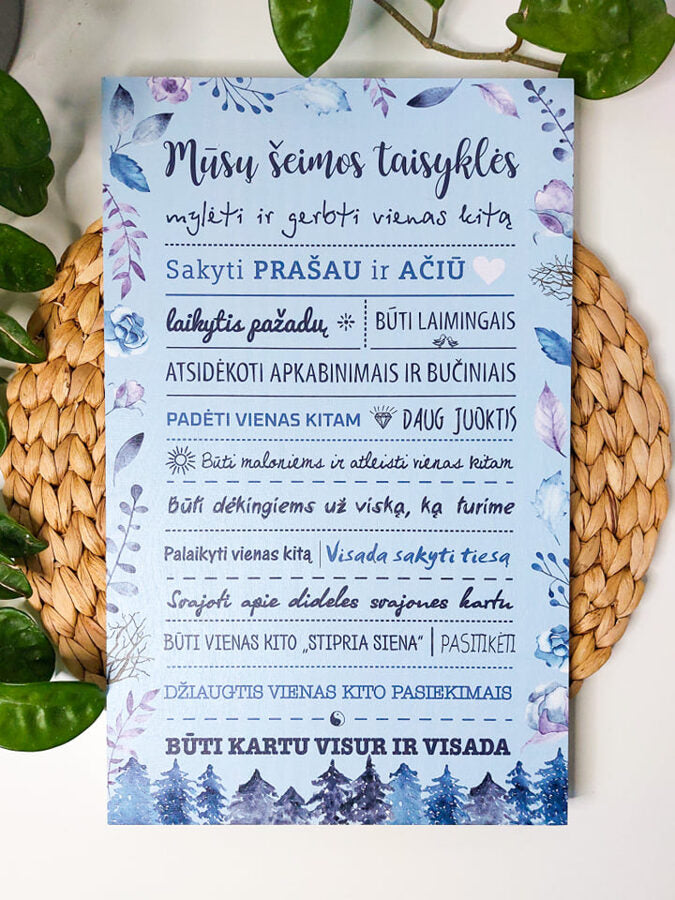 Mūsų šeimos taisyklės
mylėti ir gerbti vienas kitą
Sakyti PRAŠAU ir AČIŪ
laikytis pažadų BŪTI LAIMINGAIS
ATSIDĖKOTI APKABINIMAIS IR BUČINIAIS
PADĖTI VIENAS KITAM DAUG JUOKTIS
Būti maloniems ir atleisti vienas kitam
Būti dėkingiems už viską, ką turime
Palaikyti vienas kitą Visada sakyti tiesą
Svajoti apie dideles svajones kartu
BŪTI VIENAS KITO „STIPRIA SIENA“ PASITIKĖTI
DŽIAUGTIS VIENAS KITO PASIEKIMAIS
BŪTI KARTU VISUR IR VISADA